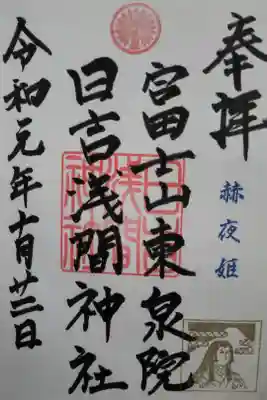 奉拝
赫夜姫
富士山東泉院
日吉浅間神社
令和元年十月廿二日